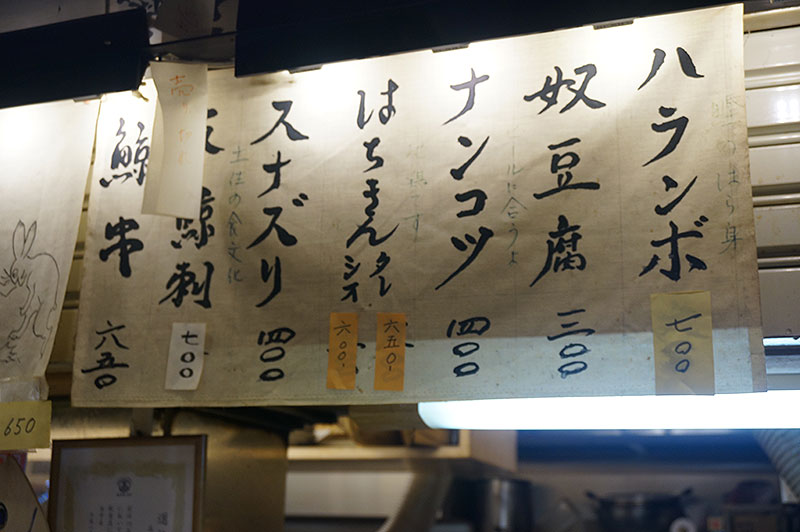 ハランボ 七〇〇
奴豆腐 三〇〇
ビールに合うよ
ナンコツ 四〇〇
はちきん タレ 六五〇-
シオ 六〇〇-
スナズリ 四〇〇
土佐の食文化
鯨刺 七〇〇
鯨串 六五〇
650